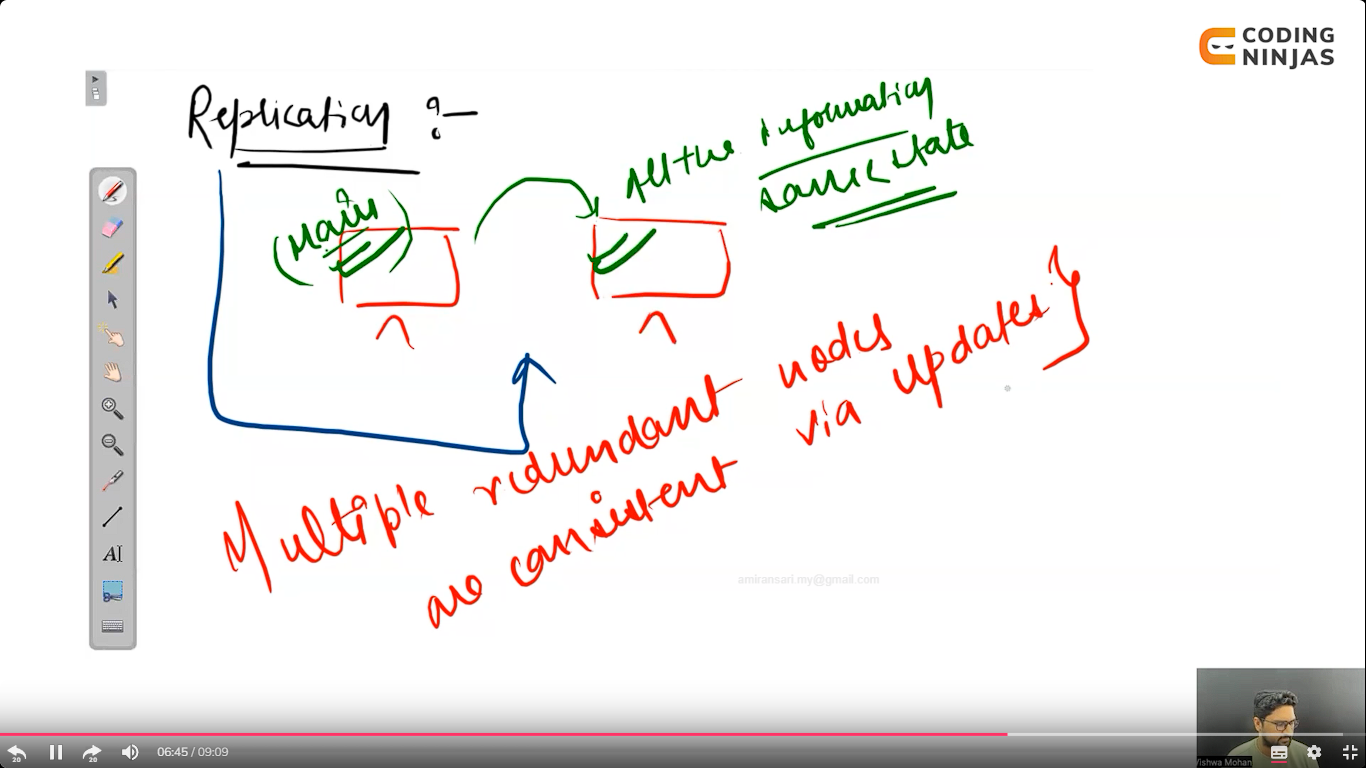 CODING
NINJAS
Replication :-
All the information
same state
(Main)
Multiple redundant nodes
are consistent via updates
amiransari.my@gmail.com
AI
20
20
06:45 / 09:09
Vishwa Mohan